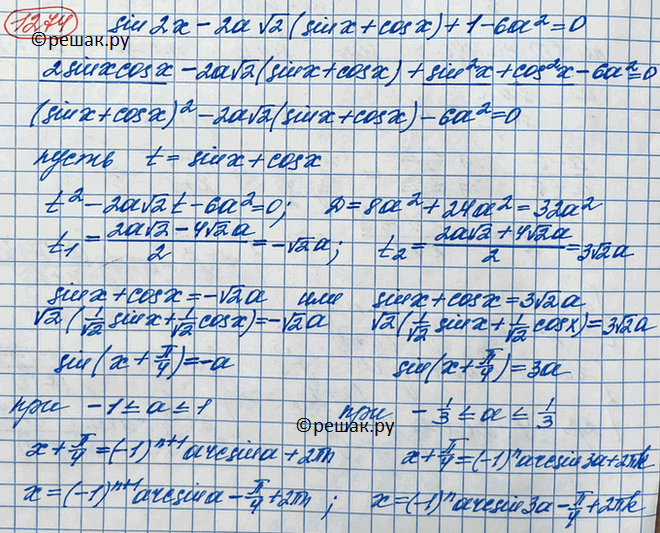 1274 sin2x - 2a√2(sinx+cosx)+1-6a²=0
©решак.ру
2sinxcosx - 2a√2(sinx+cosx)+sin²x+cos²x-6a²=0
(sinx+cosx)² - 2a√2(sinx+cosx)-6a²=0
пусть t = sinx+cosx
t² - 2a√2t - 6a²=0; D=8a²+24a²=32a²
t₁ = (2a√2 - 4√2a)/2 = -√2a; t₂ = (2a√2 + 4√2a)/2 = 3√2a
sinx+cosx=-√2a или sinx+cosx=3√2a
√2(1/√2 sinx+1/√2 cosx)=-√2a √2(1/√2 sinx+1/√2 cosx)=3√2a
sin(x+π/4)=-a sin(x+π/4)=3a
при -1≤a≤1 при -1/3≤a≤1/3
©решак.ру
x+π/4=(-1)ⁿ⁺¹arcsina+2πn x+π/4=(-1)ⁿarcsin3a+2πk
x=(-1)ⁿ⁺¹arcsina-π/4+2πn; x=(-1)ⁿarcsin3a-π/4+2πk